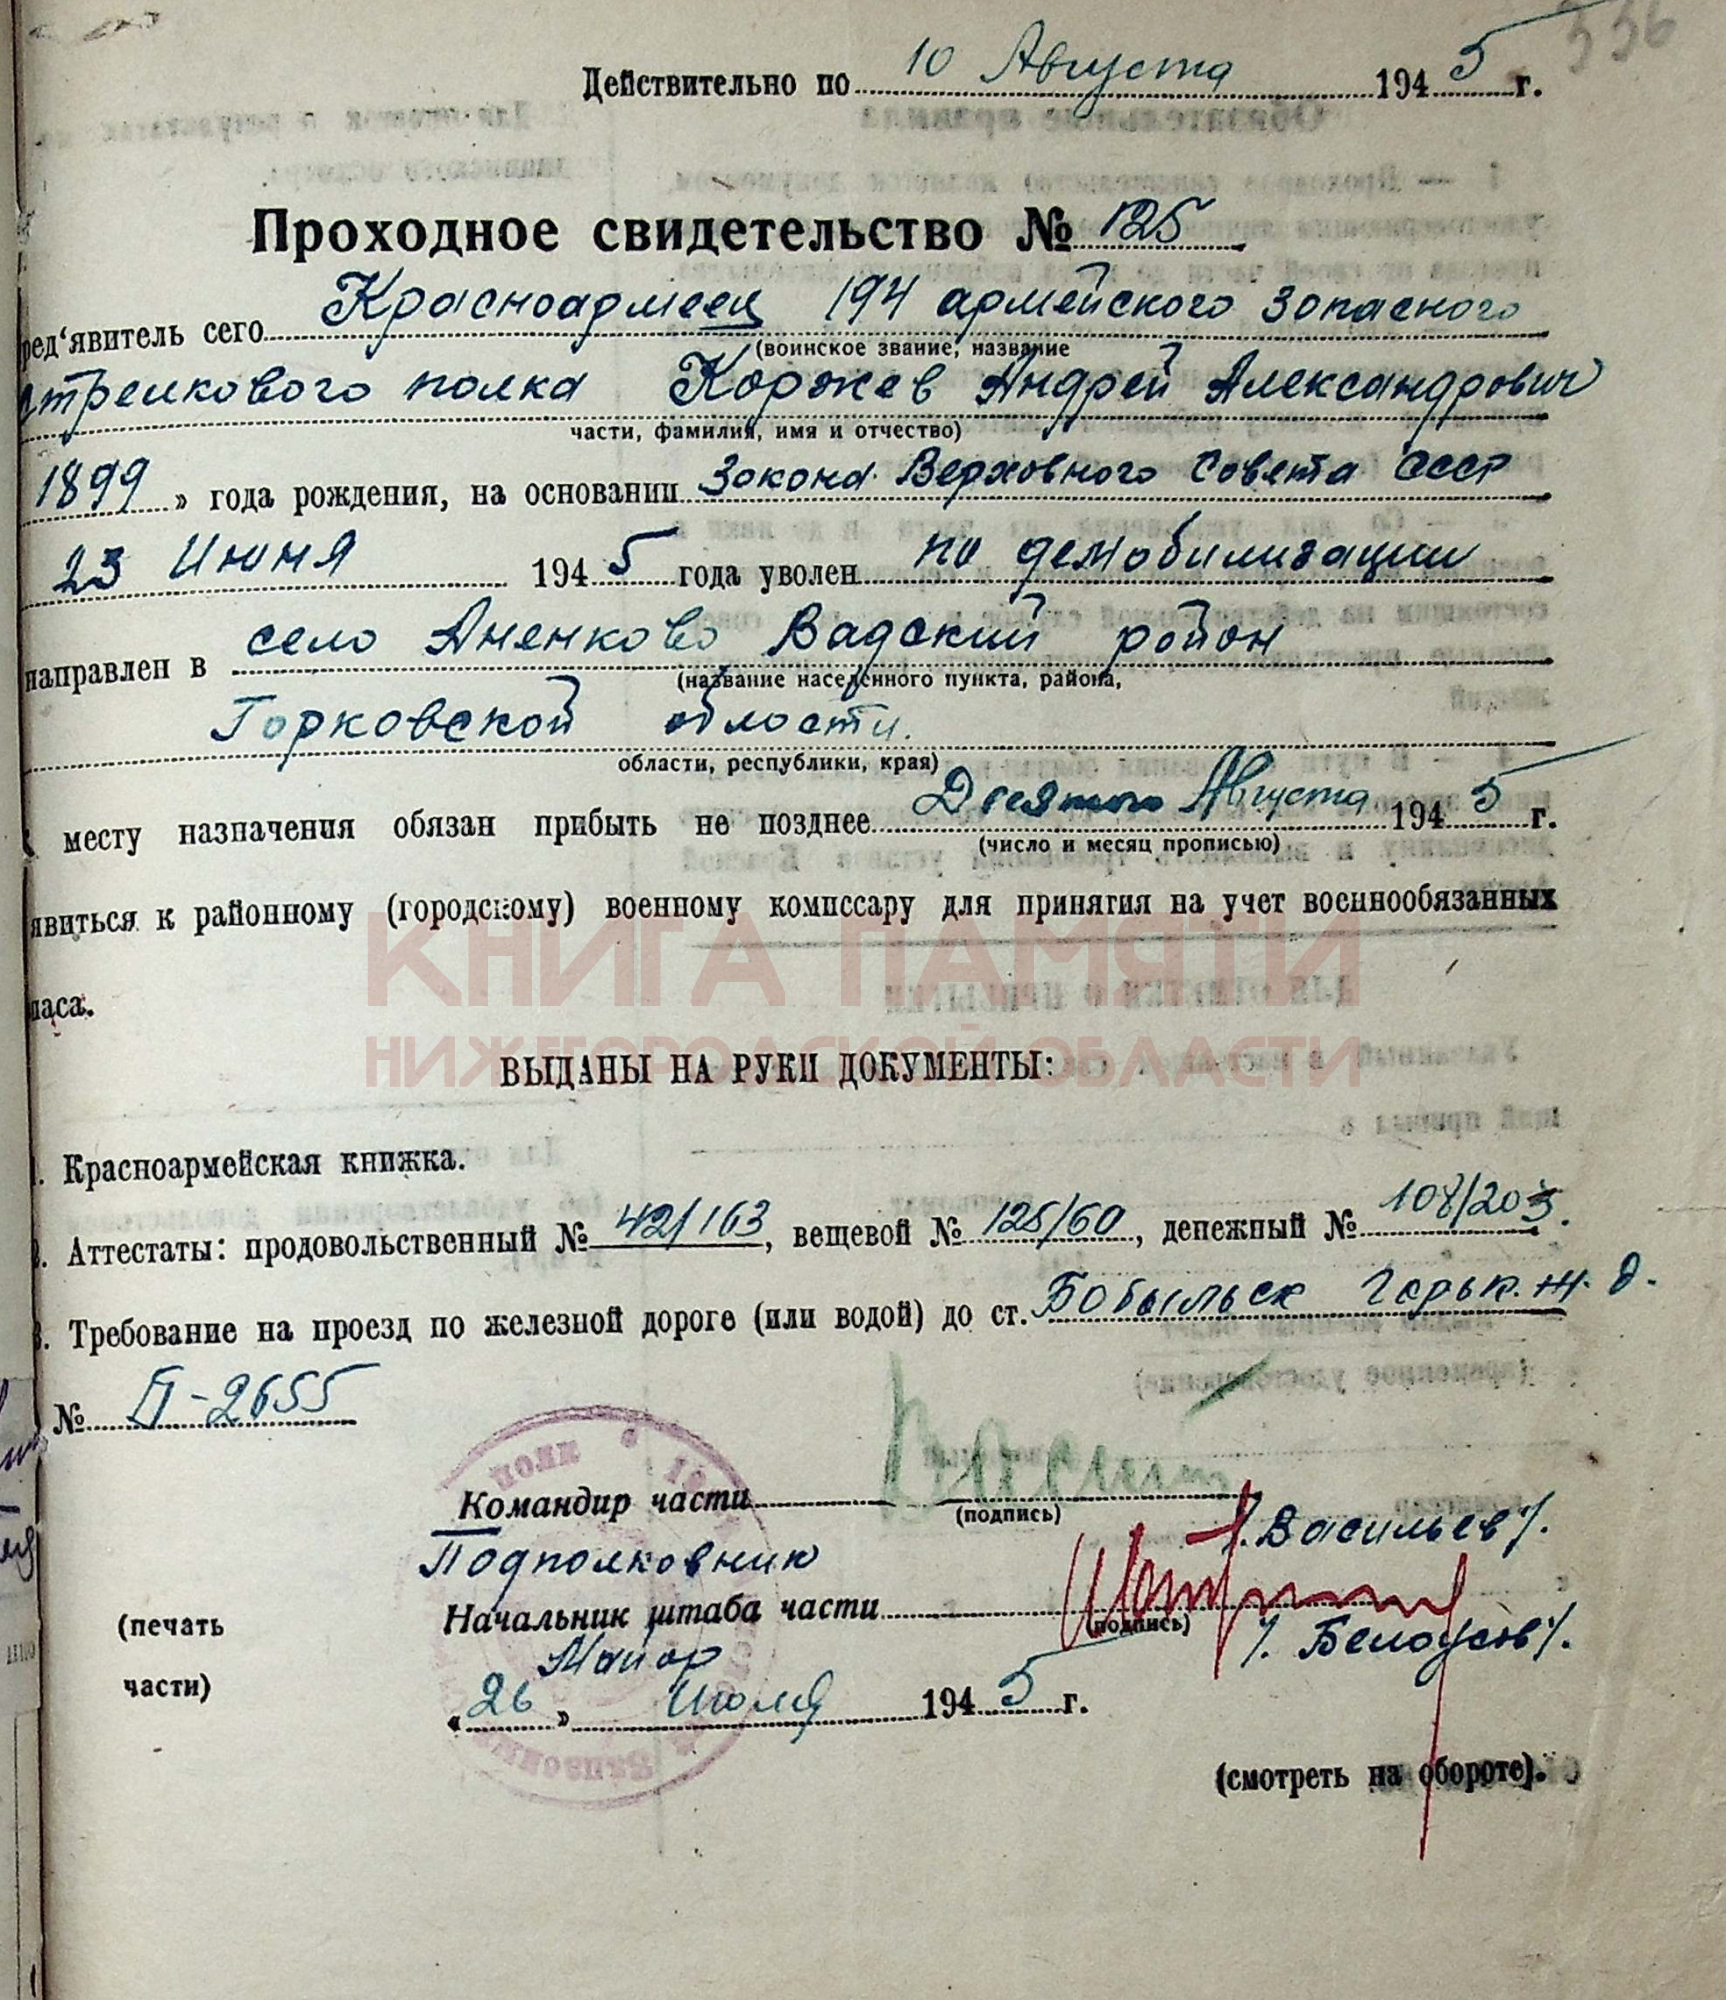 336
Действительно по 10 Августа 1945 г.
Проходное свидетельство № 125
ред'явитель сего Красноармеец 194 армейского запасного
(воинское звание, название
стрелкового полка Коржев Андрей Александрович
части, фамилия, имя и отчество)
1899 » года рождения, на основании Закона Верховного Совета СССР
23 Июня 1945 года уволен по демобилизации
направлен в село Аненково Вадский район
(название населенного пункта, района,
Горковской области.
области, республики, края)
месту назначения обязан прибыть не позднее Десятого Августа 1945 г.
(число и месяц прописью)
явиться к районному (городскому) военному комиссару для принятия на учет военнообязанных
паса.
КНИГА ПАМЯТИ
НИЖЕГОРОДСКОЙ ОБЛАСТИ
ВЫДАНЫ НА РУКИ ДОКУМЕНТЫ:
1. Красноармейская книжка.
2. Аттестаты: продовольственный № 42/163, вещевой № 125/60, денежный № 107/203.
3. Требование на проезд по железной дороге (или водой) до ст. Бобыльск Горьк. ж. д.
№ П-2655
Командир части
(подпись)
Подполковник /. Васильев/.
Начальник штаба части
(подпись)
Майор /. Белоусов/.
(печать
части)
« 26 » Июля 1945 г.
(смотреть на обороте).